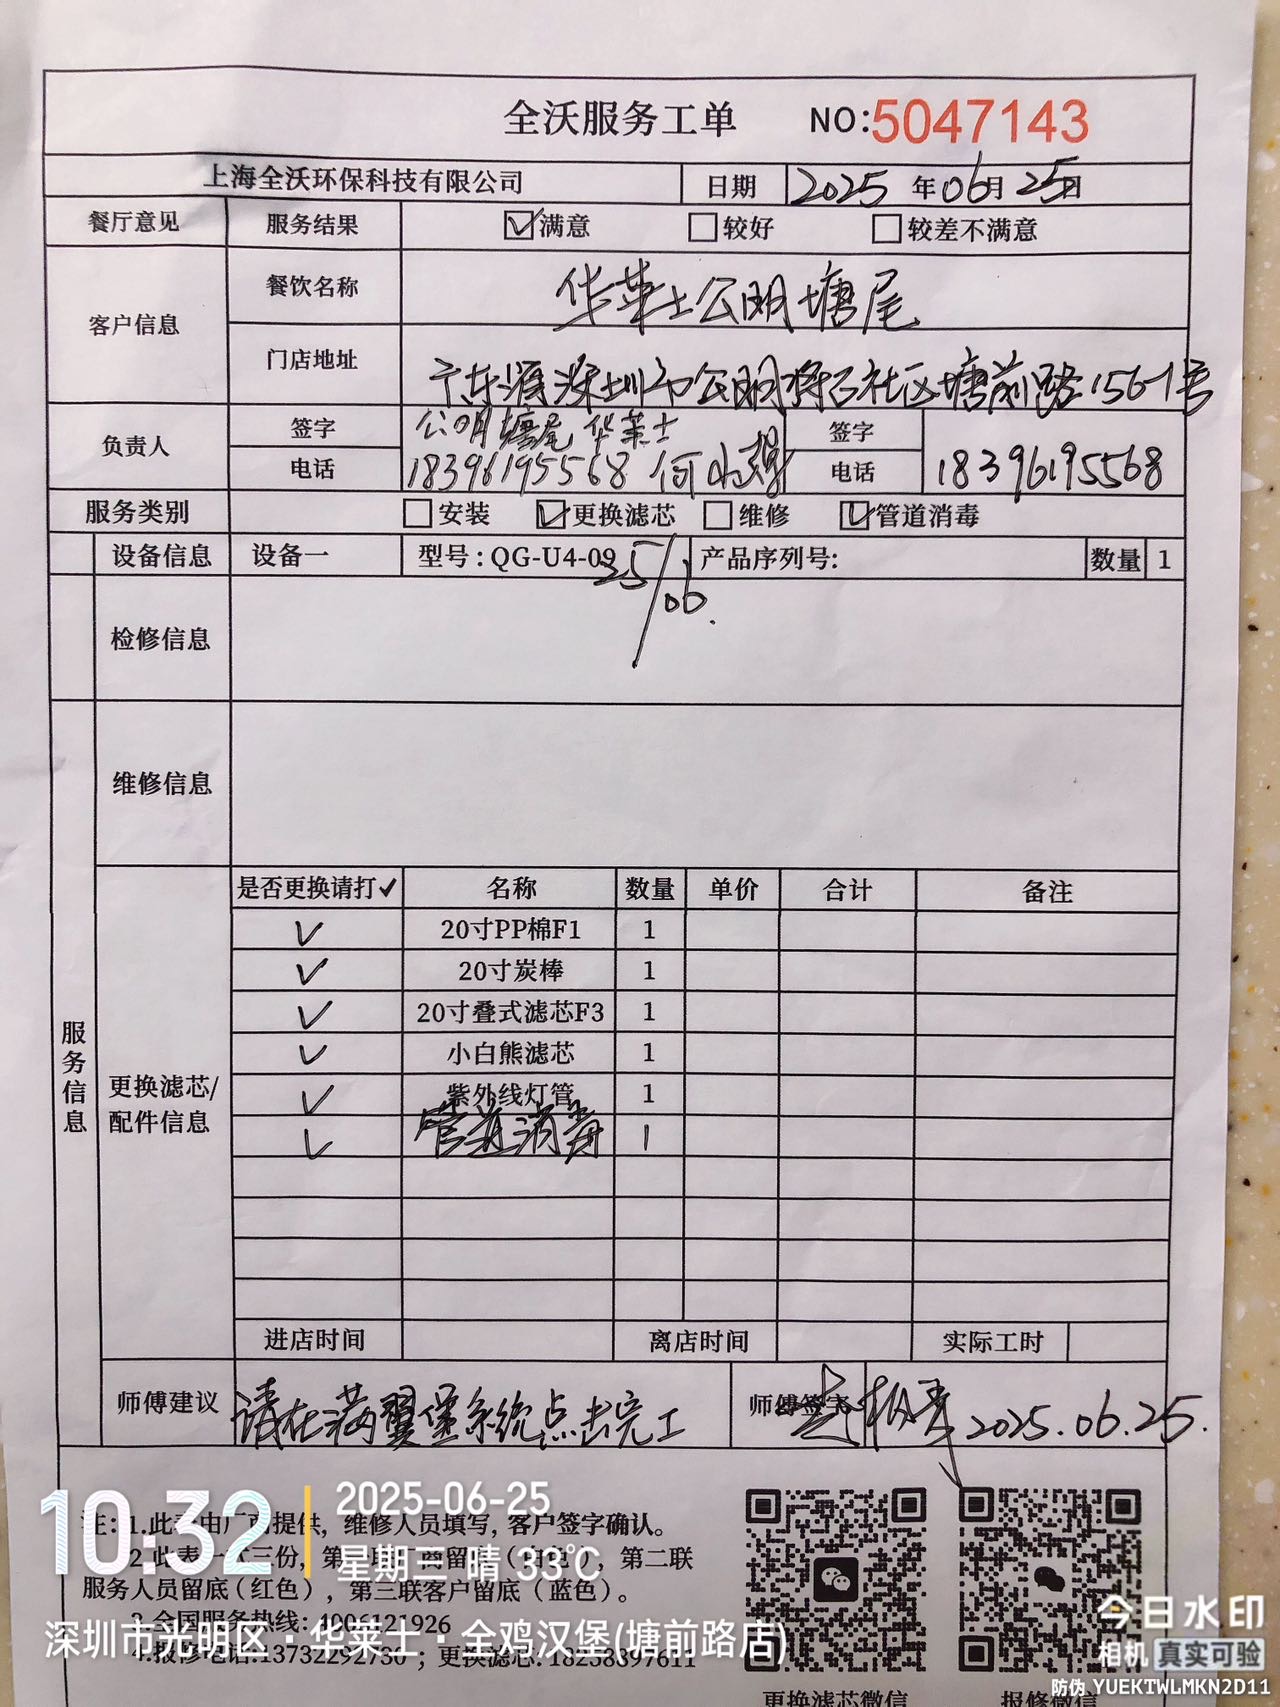 全沃服务工单 NO:5047143
上海全沃环保科技有限公司 日期 2025年06月25日
餐厅意见 服务结果 满意 较好 较差不满意
客户信息 餐饮名称 华莱士公明塘尾
门店地址 深圳市公明将石社区塘前路156-1号
负责人 签字 公明塘尾华莱士 签字
电话 18396195568 何 电话 18396195568
服务类别 安装 更换滤芯 维修 管道消毒
设备信息 设备一 型号:QG-U4-09 产品序列号: 数量 1
25/06.
检修信息
维修信息
服务信息
更换滤芯/
配件信息
是否更换请打✓ 名称 数量 单价 合计 备注
✓ 20寸PP棉F1 1
✓ 20寸炭棒 1
✓ 20寸叠式滤芯F3 1
✓ 小白熊滤芯 1
✓ 紫外线灯管 1
✓ 管道消毒 1
进店时间 离店时间 实际工时
师傅建议 请在满翼堡系统点击完工 师傅签字 2025.06.25.
注:1.此表由厂商提供,维修人员填写,客户签字确认。
2.此表一式三份,第一联厂商留底(白色),第二联
服务人员留底(红色),第三联客户留底(蓝色)。
3.全国服务热线:4006121926
4.报修电话:13732292730;更换滤芯:18258897611
更换滤芯微信 报修微信
10:32
2025-06-25
星期三 晴 33℃
深圳市光明区·华莱士·全鸡汉堡(塘前路店)
今日水印
相机 真实可验
防伪 YUEKTWLMKN2D11